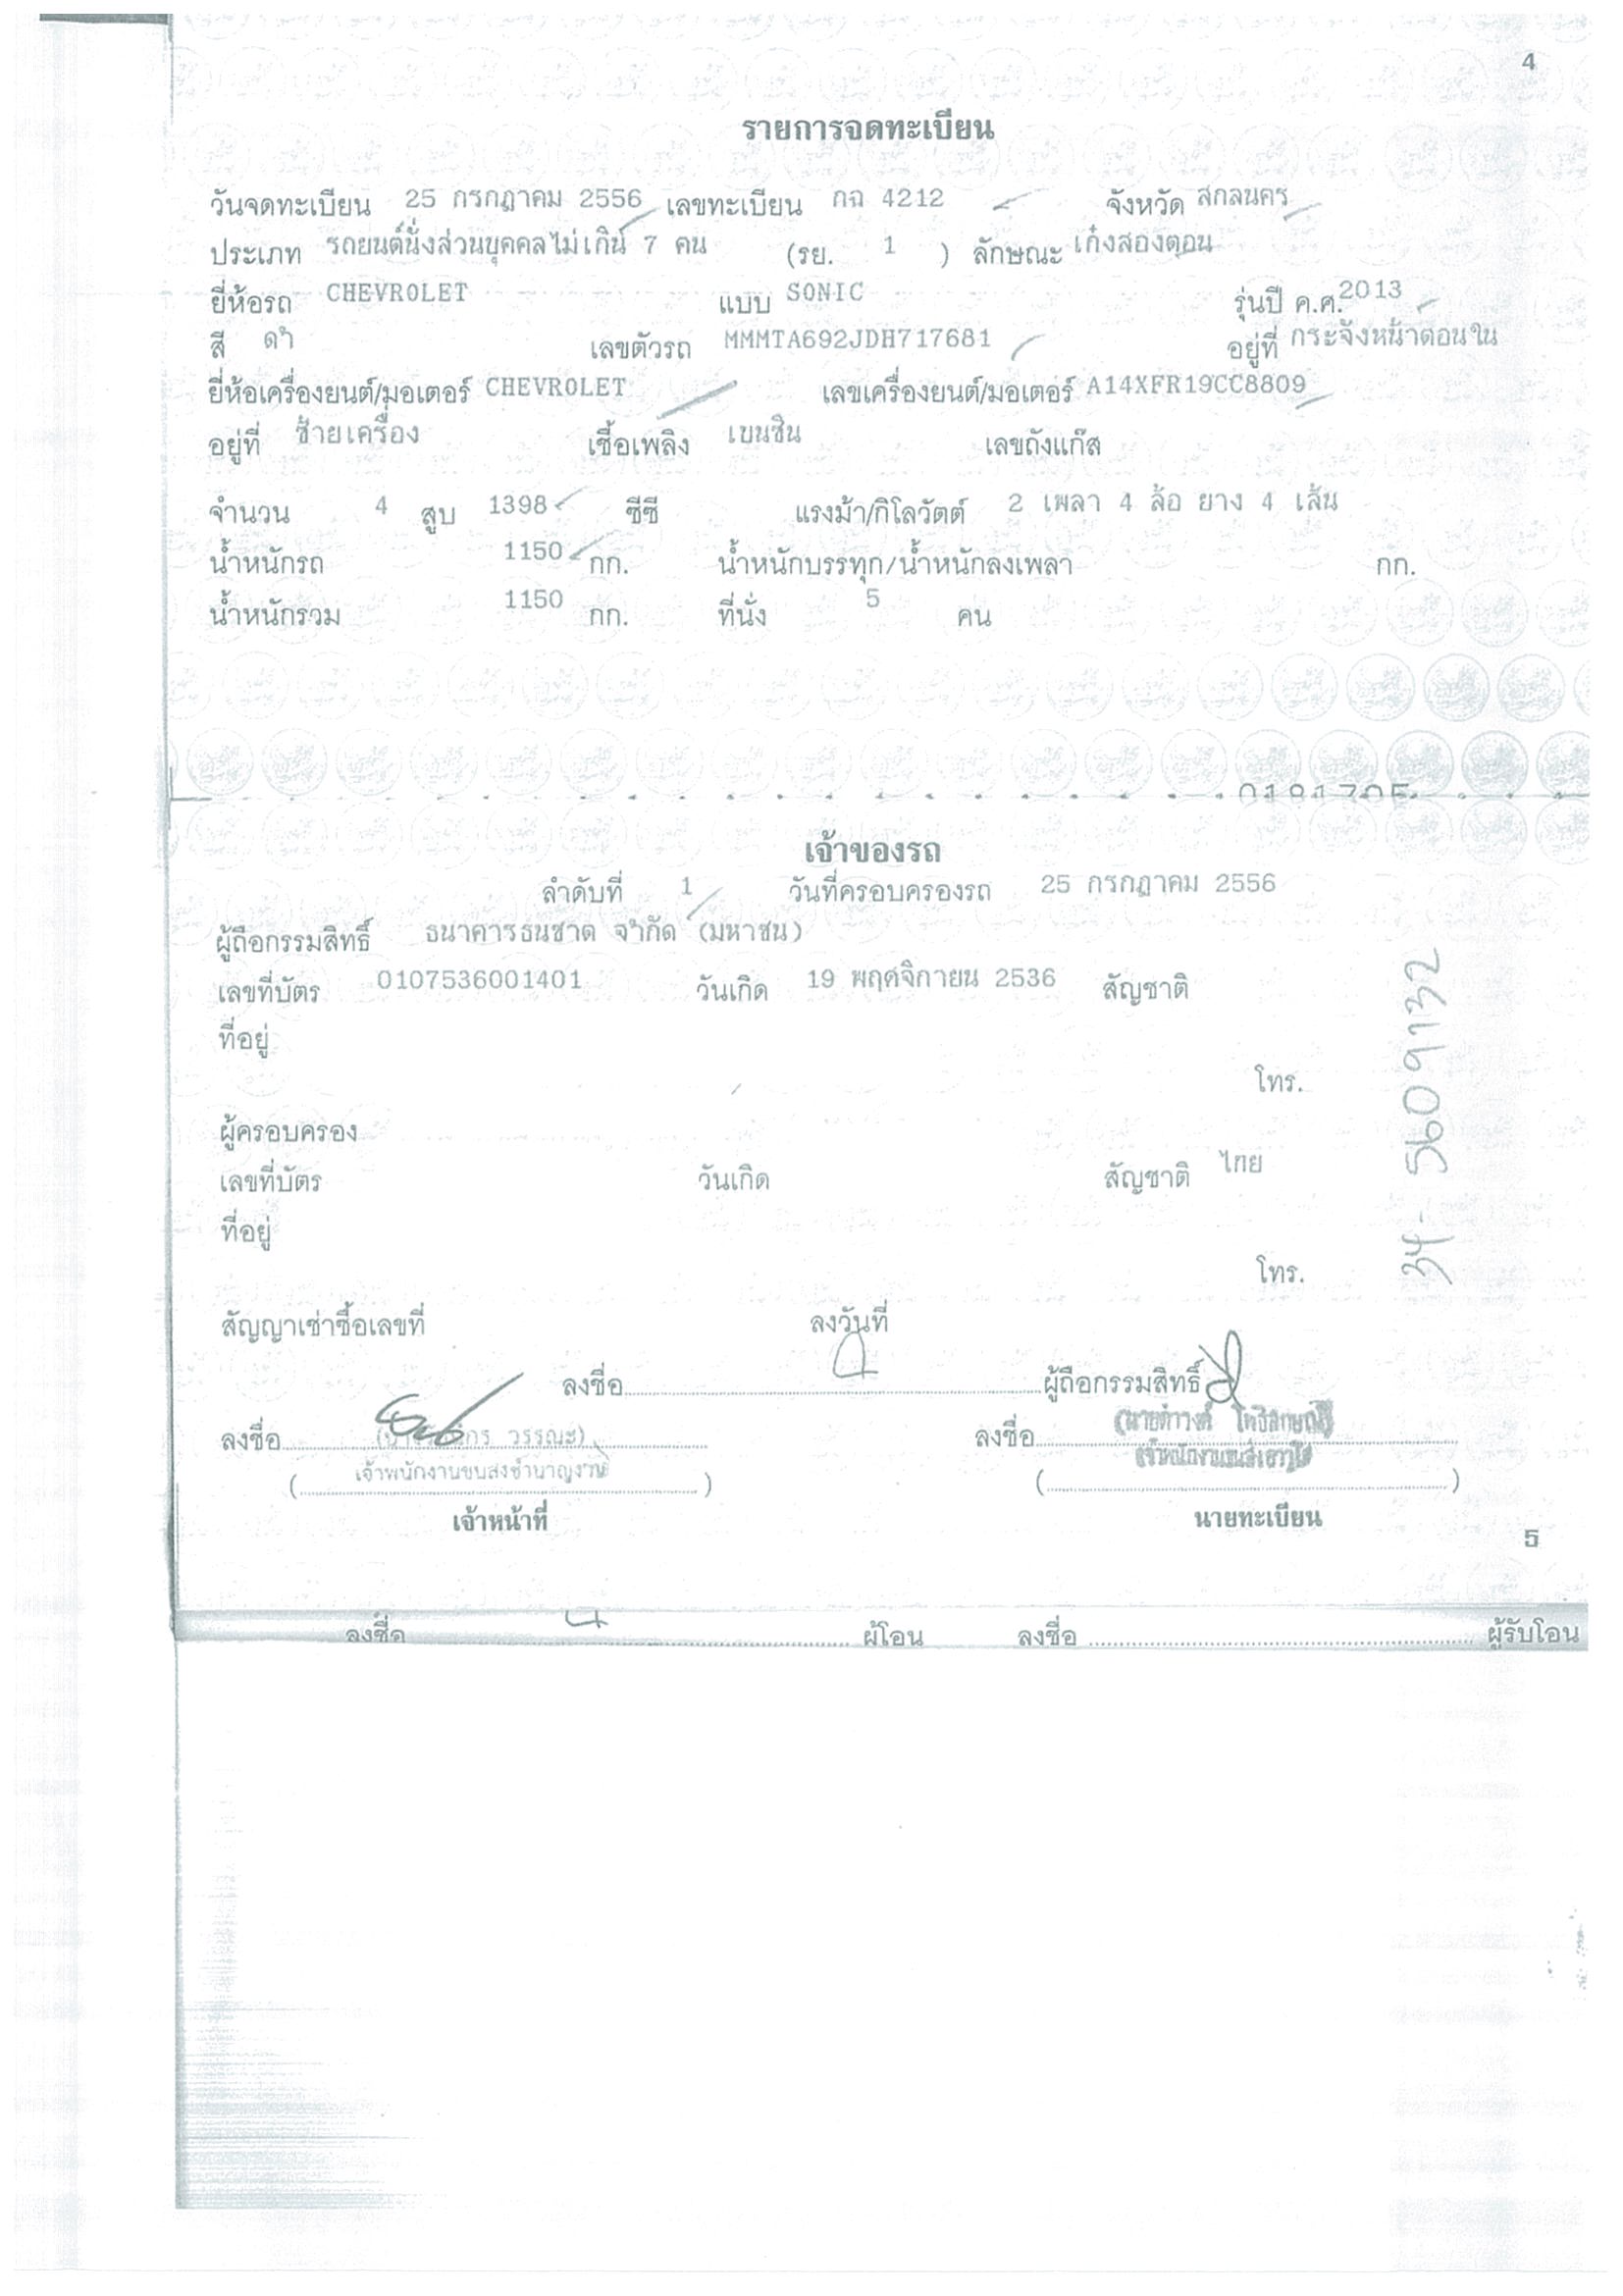 4
รายการจดทะเบียน
วันจดทะเบียน 25 กรกฎาคม 2556 เลขทะเบียน กฉ 4212 จังหวัด สกลนคร
ประเภท รถยนต์นั่งส่วนบุคคลไม่เกิน 7 คน (รย. 1 ) ลักษณะ เก๋งสองตอน
ยี่ห้อรถ CHEVROLET แบบ SONIC รุ่นปี ค.ศ. 2013
สี ดำ เลขตัวรถ MMMTA692JDH717681 อยู่ที่ กระจังหน้าตอนใน
ยี่ห้อเครื่องยนต์/มอเตอร์ CHEVROLET เลขเครื่องยนต์/มอเตอร์ A14XFR19CC8809
อยู่ที่ ซ้ายเครื่อง เชื้อเพลิง เบนซิน เลขถังแก๊ส
จำนวน 4 สูบ 1398 ซีซี แรงม้า/กิโลวัตต์ 2 เพลา 4 ล้อ ยาง 4 เส้น
น้ำหนักรถ 1150 กก. น้ำหนักบรรทุก/น้ำหนักลงเพลา กก.
น้ำหนักรวม 1150 กก. ที่นั่ง 5 คน
เจ้าของรถ
ลำดับที่ 1 วันที่ครอบครองรถ 25 กรกฎาคม 2556
ผู้ถือกรรมสิทธิ์ ธนาคารธนชาต จำกัด (มหาชน)
เลขที่บัตร 0107536001401 วันเกิด 19 พฤศจิกายน 2536 สัญชาติ
ที่อยู่
โทร.
ผู้ครอบครอง
เลขที่บัตร วันเกิด สัญชาติ ไทย
ที่อยู่
โทร.
สัญญาเช่าซื้อเลขที่ ลงวันที่
ลงชื่อ ผู้ถือกรรมสิทธิ์
ลงชื่อ วรรณะ) ลงชื่อ
เจ้าพนักงานขนส่งชำนาญงาน
เจ้าหน้าที่ นายทะเบียน
5
ลงชื่อ ผู้โอน ลงชื่อ ผู้รับโอน